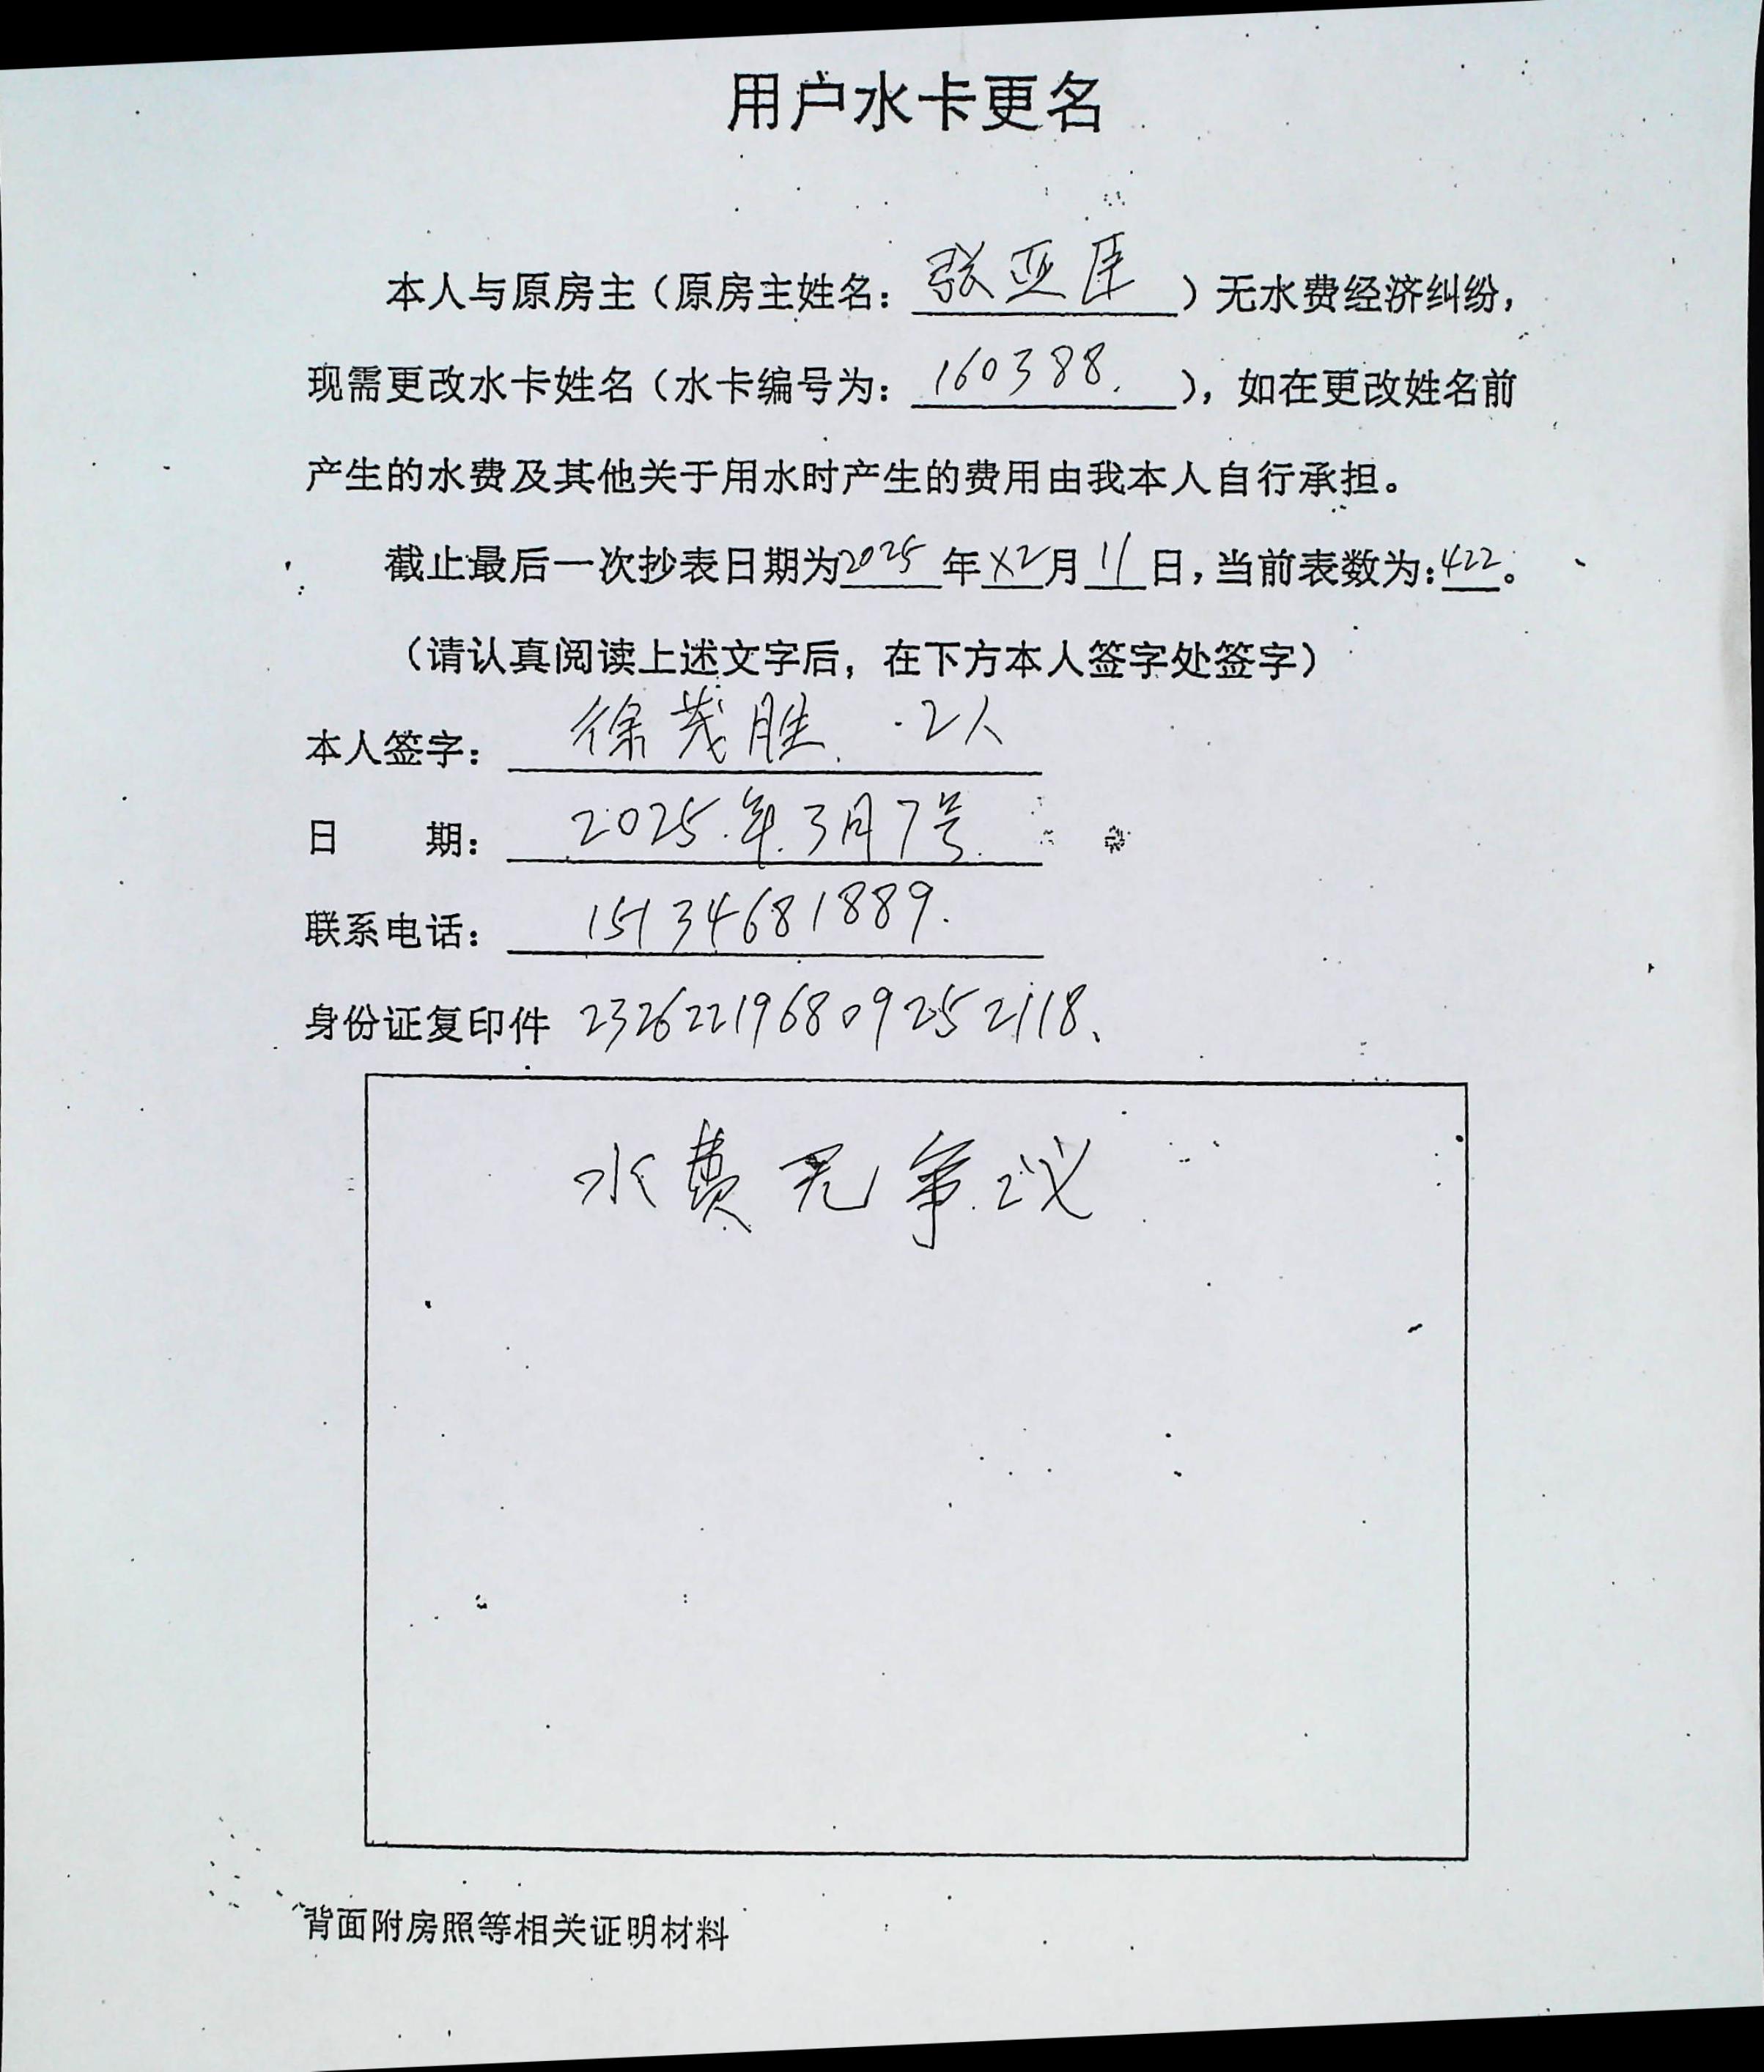 用户水卡更名
本人与原房主（原房主姓名：张亚臣）无水费经济纠纷，
现需更改水卡姓名（水卡编号为：160388.），如在更改姓名前
产生的水费及其他关于用水时产生的费用由我本人自行承担。
截止最后一次抄表日期为2025年2月11日，当前表数为：422。
（请认真阅读上述文字后，在下方本人签字处签字）
本人签字：徐茂胜.·2人
日　　期：2025.年.3月7号.
联系电话：15134681889.
身份证复印件 232622196809252118、
水费无争议
背面附房照等相关证明材料